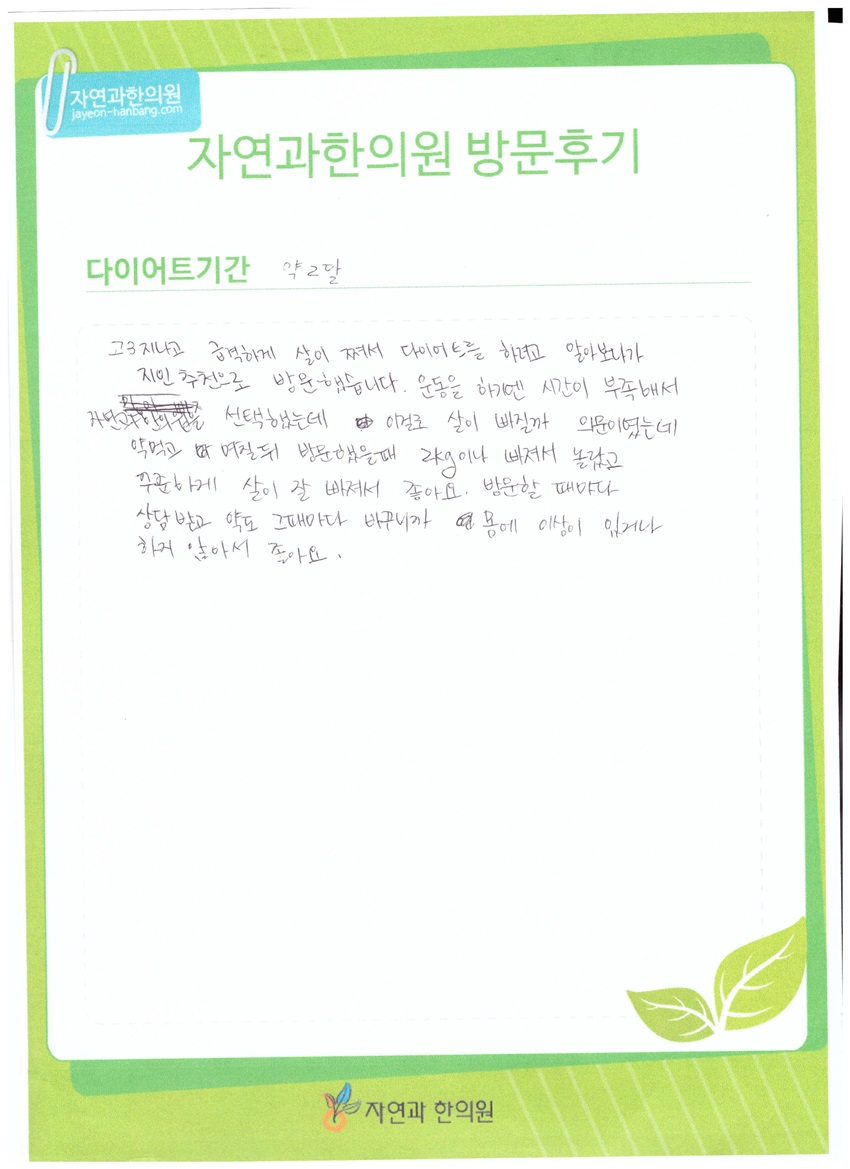 자연과한의원
jayeon-hanbang.com
자연과한의원 방문후기
다이어트기간 약 2달
고3지나고 급격하게 살이 쪄서 다이어트를 하려고 알아보다가
지인 추천으로 방문했습니다. 운동을 하기엔 시간이 부족해서
자연과한의원을 선택했는데 이걸로 살이 빠질까 의문이였는데
약먹고 며칠뒤 방문했을때 2kg이나 빠져서 놀랐고
꾸준하게 살이 잘 빠져서 좋아요. 방문할 때마다
상담받고 약도 그때마다 바꾸니까 몸에 이상이 있거나
하지 않아서 좋아요.
자연과 한의원